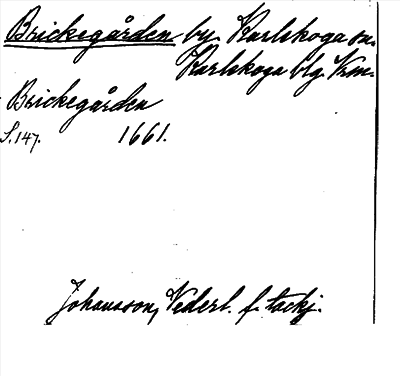 Brickegården by Karlskoga sn.
Karlskoga blg. Vrm.
Brickegården
S. 147. 1661.
Johansson, Vederl. f. tackj.